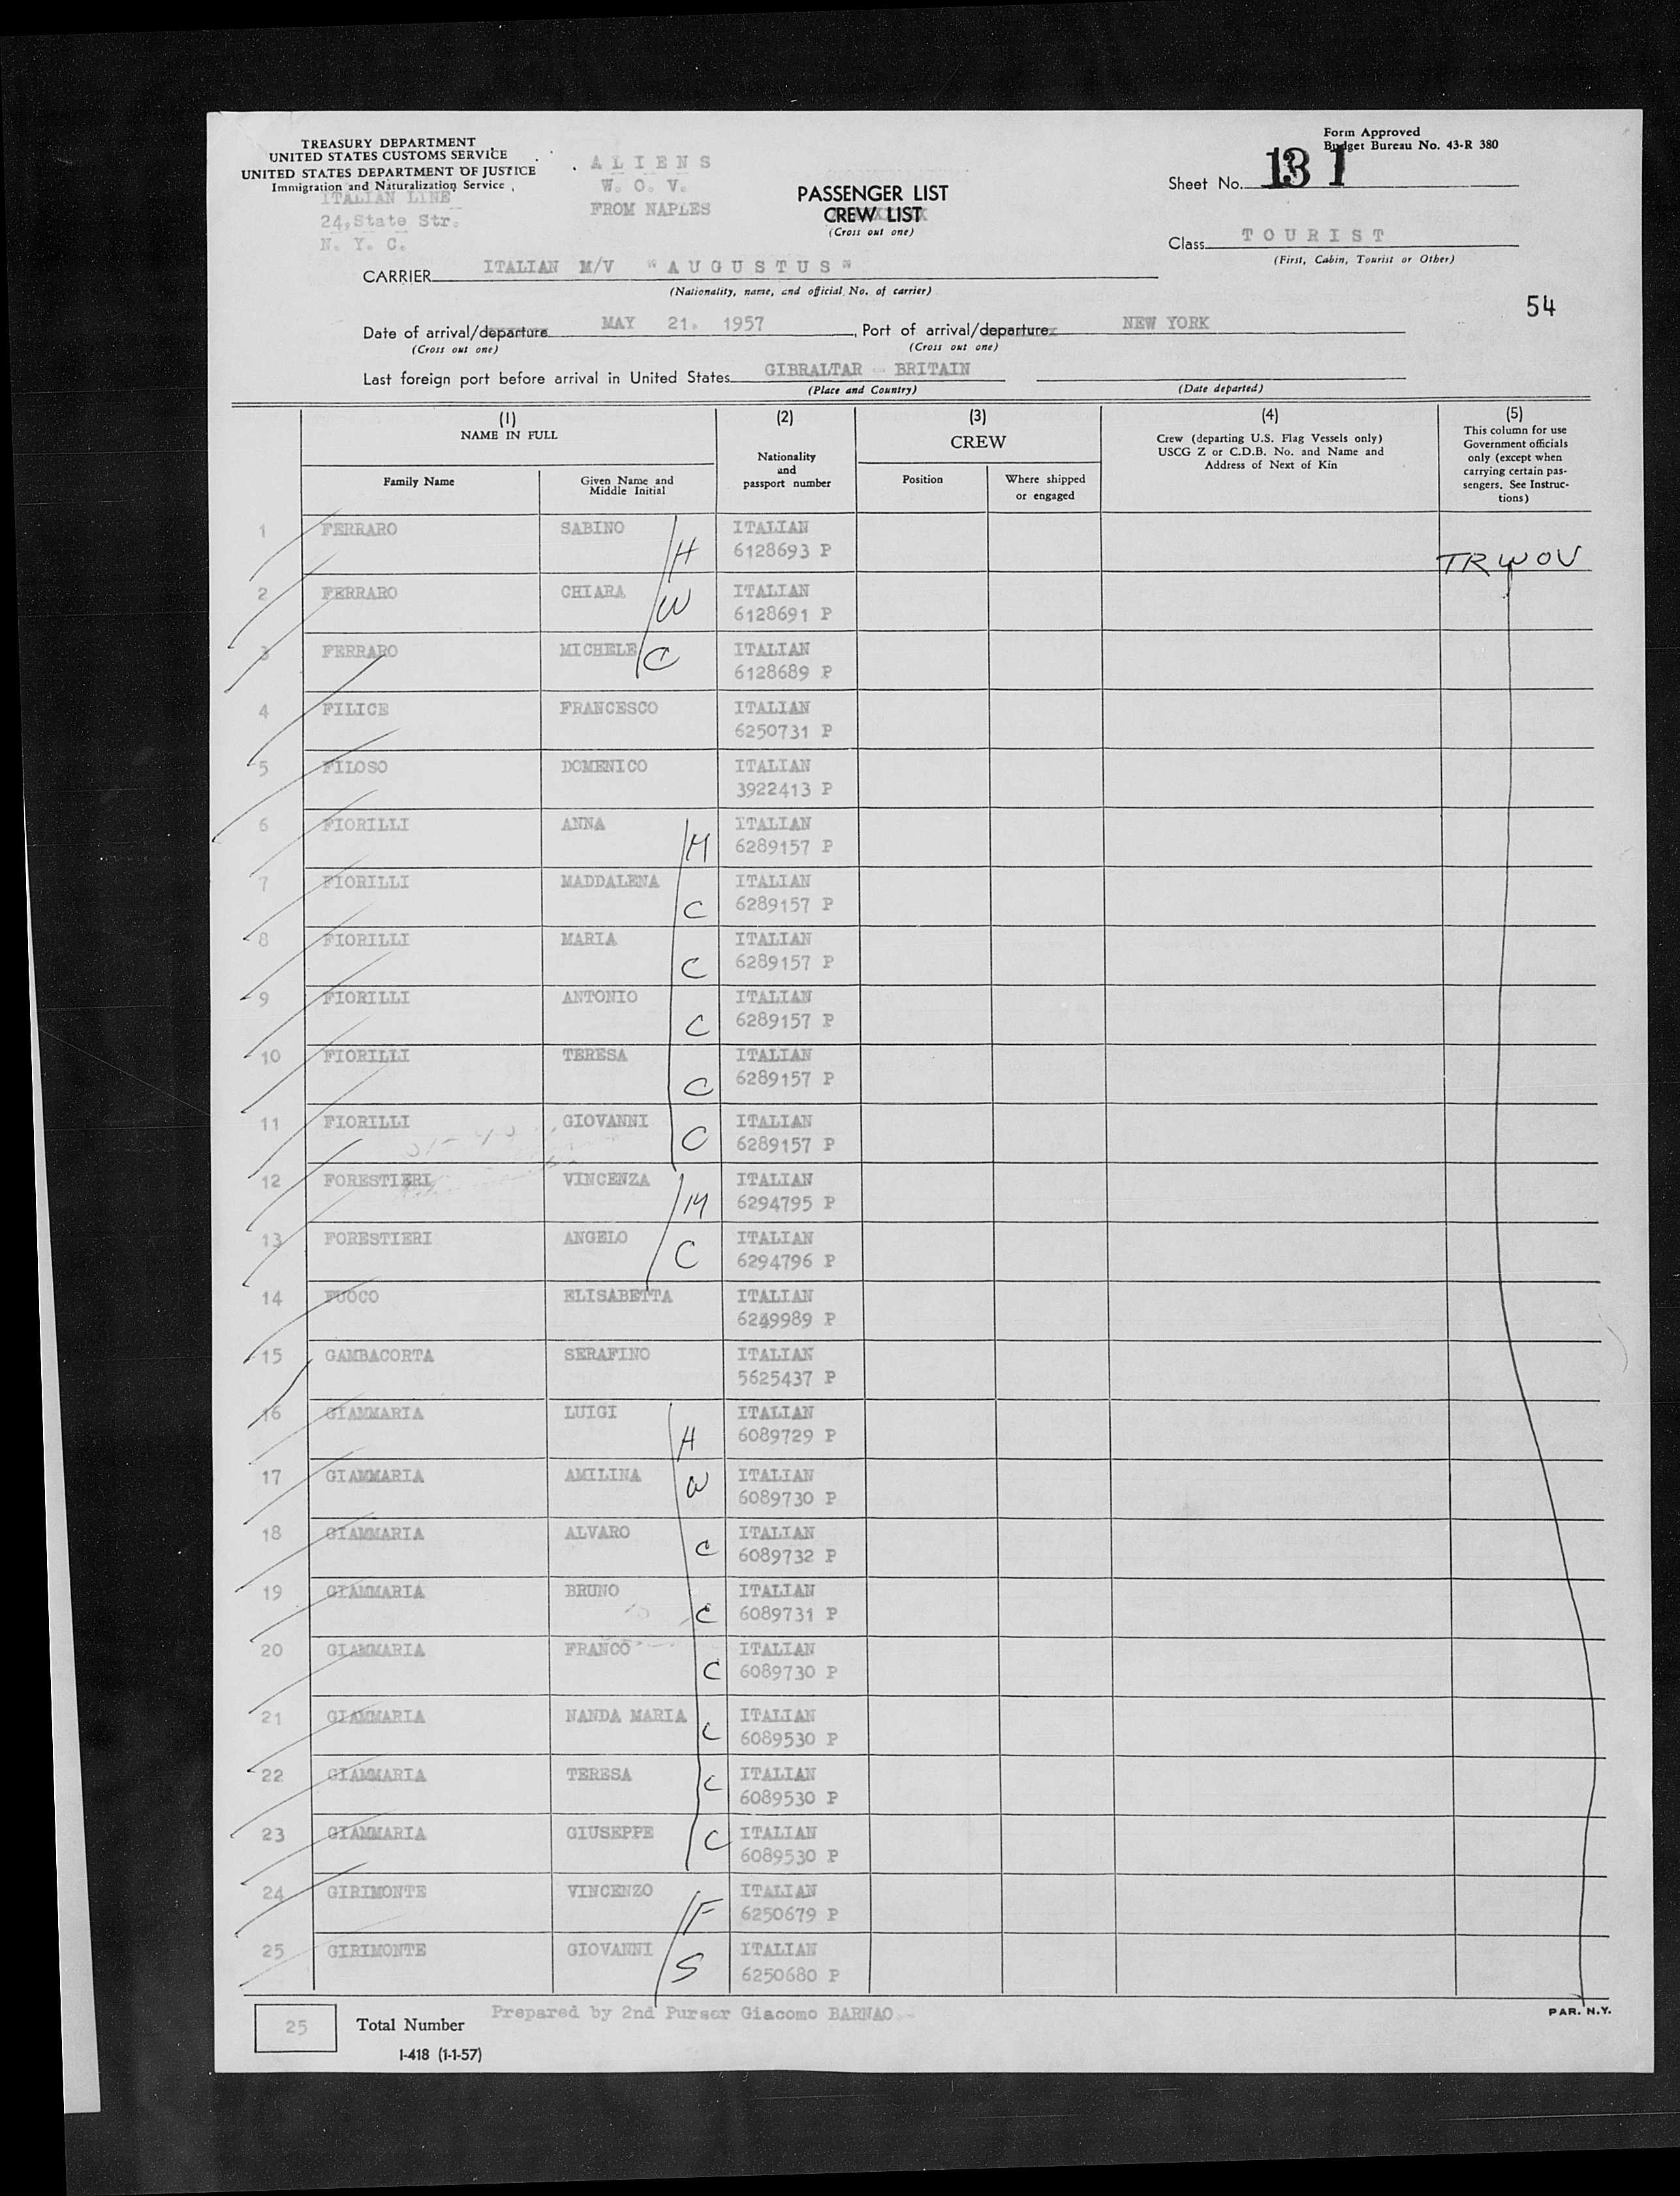 TREASURY DEPARTMENT
UNITED STATES CUSTOMS SERVICE
UNITED STATES DEPARTMENT OF JUSTICE
Immigration and Naturalization Service
ITALIAN LINE
24, State Str.
N. Y. C.
A L I E N S
W. O. V.
FROM NAPLES
PASSENGER LIST
CREW LIST
(Cross out one)
Form Approved
Budget Bureau No. 43-R 380
Sheet No. 13 1
Class T O U R I S T
(First, Cabin, Tourist or Other)
CARRIER ITALIAN M/V "A U G U S T U S"
(Nationality, name, and official No. of carrier)
54
Date of arrival/departure MAY 21. 1957, Port of arrival/departure NEW YORK
(Cross out one) (Cross out one)
Last foreign port before arrival in United States GIBRALTAR - BRITAIN
(Place and Country) (Date departed)
(1) NAME IN FULL
Family Name
Given Name and Middle Initial
(2) Nationality and passport number
(3) CREW
Position
Where shipped or engaged
(4) Crew (departing U.S. Flag Vessels only) USCG Z or C.D.B. No. and Name and Address of Next of Kin
(5) This column for use Government officials only (except when carrying certain passengers. See Instructions)
1 FERRARO SABINO H ITALIAN 6128693 P TRWOV
2 FERRARO CHIARA W ITALIAN 6128691 P
3 FERRARO MICHELE C ITALIAN 6128689 P
4 FILICE FRANCESCO ITALIAN 6250731 P
5 FILOSO DOMENICO ITALIAN 3922413 P
6 FIORILLI ANNA M ITALIAN 6289157 P
7 FIORILLI MADDALENA C ITALIAN 6289157 P
8 FIORILLI MARIA C ITALIAN 6289157 P
9 FIORILLI ANTONIO C ITALIAN 6289157 P
10 FIORILLI TERESA C ITALIAN 6289157 P
11 FIORILLI GIOVANNI C ITALIAN 6289157 P
12 FORESTIERI VINCENZA M ITALIAN 6294795 P
13 FORESTIERI ANGELO C ITALIAN 6294796 P
14 FUOCO ELISABETTA ITALIAN 6249989 P
15 GAMBACORTA SERAFINO ITALIAN 5625437 P
16 GIAMMARIA LUIGI H ITALIAN 6089729 P
17 GIAMMARIA AMILINA W ITALIAN 6089730 P
18 GIAMMARIA ALVARO C ITALIAN 6089732 P
19 GIAMMARIA BRUNO C ITALIAN 6089731 P
20 GIAMMARIA FRANCO C ITALIAN 6089730 P
21 GIAMMARIA NANDA MARIA C ITALIAN 6089530 P
22 GIAMMARIA TERESA C ITALIAN 6089530 P
23 GIAMMARIA GIUSEPPE C ITALIAN 6089530 P
24 GIRIMONTE VINCENZO F ITALIAN 6250679 P
25 GIRIMONTE GIOVANNI S ITALIAN 6250680 P
25 Total Number
Prepared by 2nd Purser Giacomo BARNAO.-
PAR. N.Y.
I-418 (1-1-57)